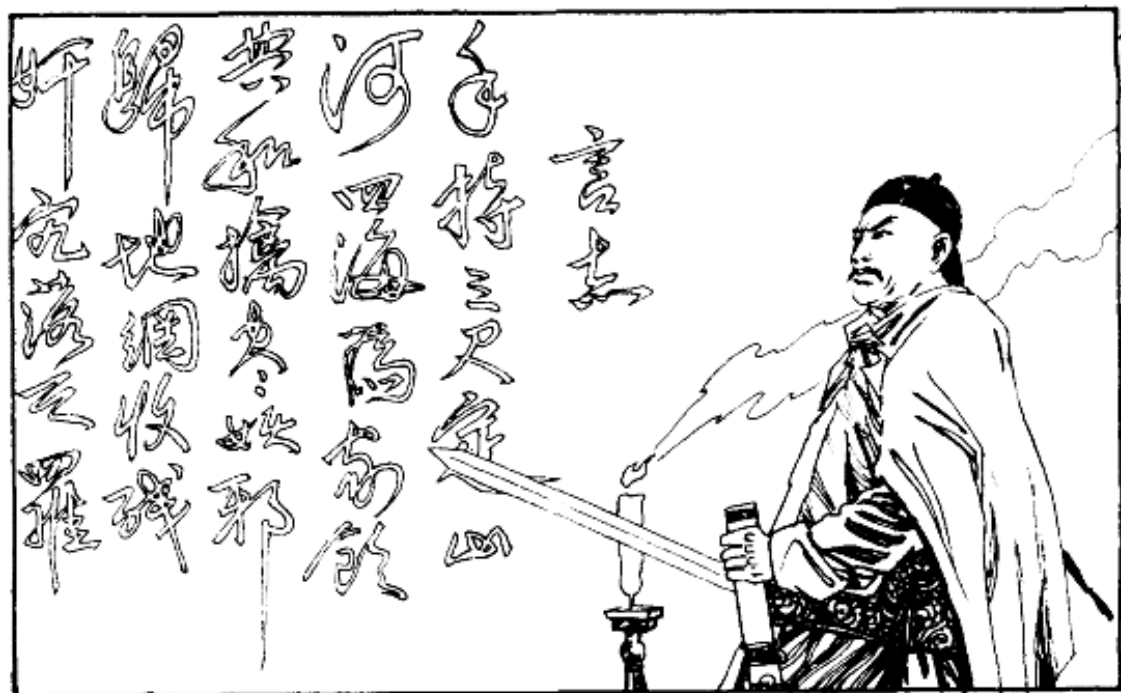 言志
手持三尺定山
河四海為家飲
共和擒尽妖邪
歸地網收殘
奸宄落天羅